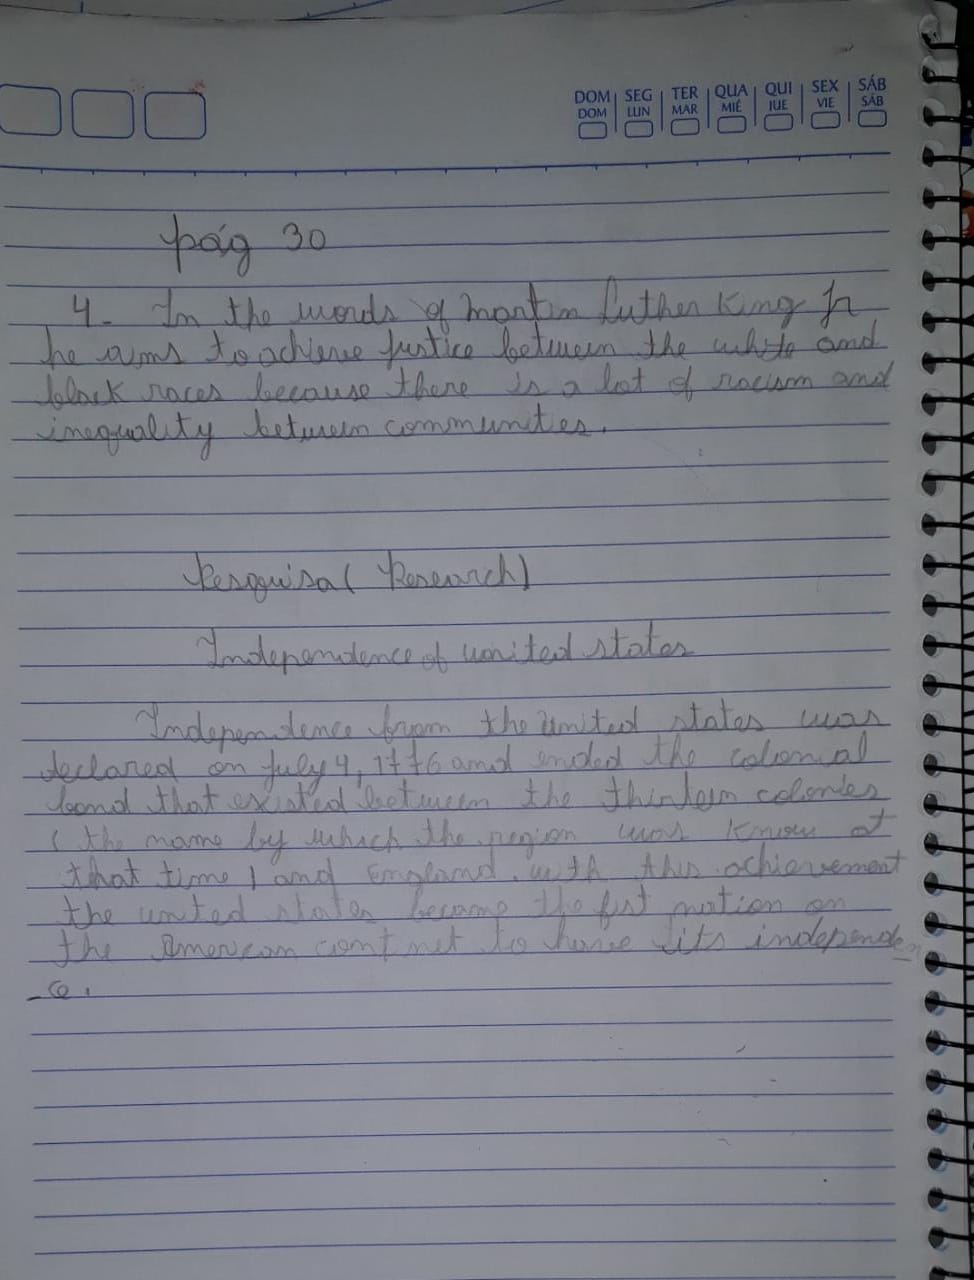 DOM SEG TER QUA QUI SEX SÁB
DOM LUN MAR MIÉ JUE VIE SÁB
pág 30
4- In the words of Martin Luther King Jr
he aims to achieve justice between the white and
black races because there is a lot of racism and
inequality between communities.
Pesquisa ( Research)
Independence of united states
Independence from the united states was
declared on July 4, 1776 and ended the colonial
bond that existed between the thirteen colonies
( the name by which the region was know at
that time ) and England. with this achievement
the united states became the fist nation on
the American continet to have its independen
-ce.